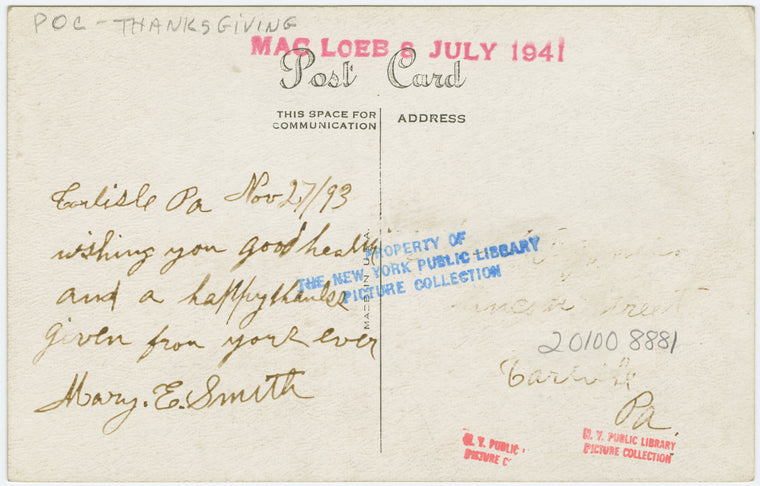 POC - THANKSGIVING
MAC LOEB 8 JULY 1941
Post Card
THIS SPACE FOR
COMMUNICATION
ADDRESS
Carlisle Pa Nov 27/93
wishing you good health
and a happy thanks
given from yors ever
Mary. E. Smith
MADE IN U.S.A.
PROPERTY OF
THE NEW YORK PUBLIC LIBRARY
PICTURE COLLECTION
Street
20100 8881
Carlisle
Pa.
N. Y. PUBLIC
PICTURE C
N. Y. PUBLIC LIBRARY
PICTURE COLLECTION